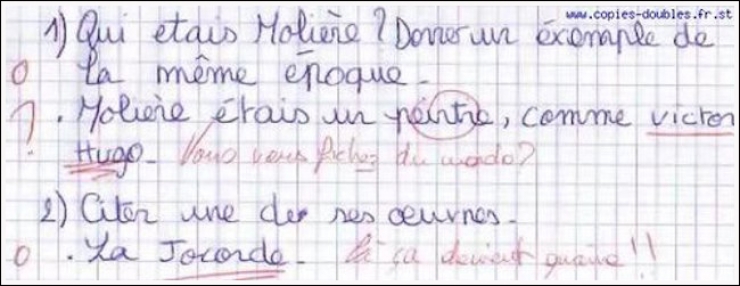 www.copies-doubles.fr.st
1) Qui etais Molière ? Donner un éxemple de
0 la même époque.
? . Molière étais un peintre, comme victor
Hugo. Vous vous fichez du monde?
2) Citer une de ses œuvres.
0 . La Joconde. là ça devient grave !!